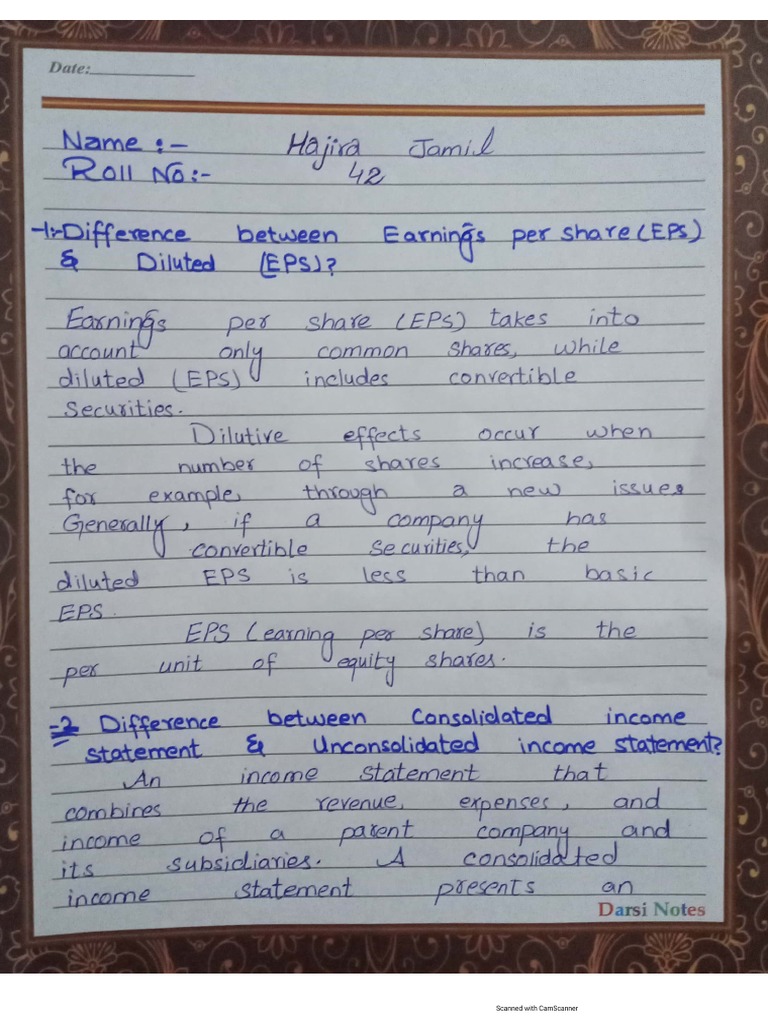 Date:
Name :-   Hajira   Jamil
Roll No:-   42
-1:- Difference between Earnings per share (EPS)
& Diluted (EPS)?
Earnings per share (EPS) takes into
account only common shares, while
diluted (EPS) includes convertible
Securities.
Dilutive effects occur when
the number of shares increase,
for example, through a new issues
Generally, if a company has
convertible securities, the
diluted EPS is less than basic
EPS.
EPS (earning per share) is the
per unit of equity shares.
-2 Difference between Consolidated income
statement & Unconsolidated income statement?
An income statement that
combines the revenue, expenses, and
income of a parent company and
its subsidiaries. A consolidated
income statement presents an
Darsi Notes
Scanned with CamScanner